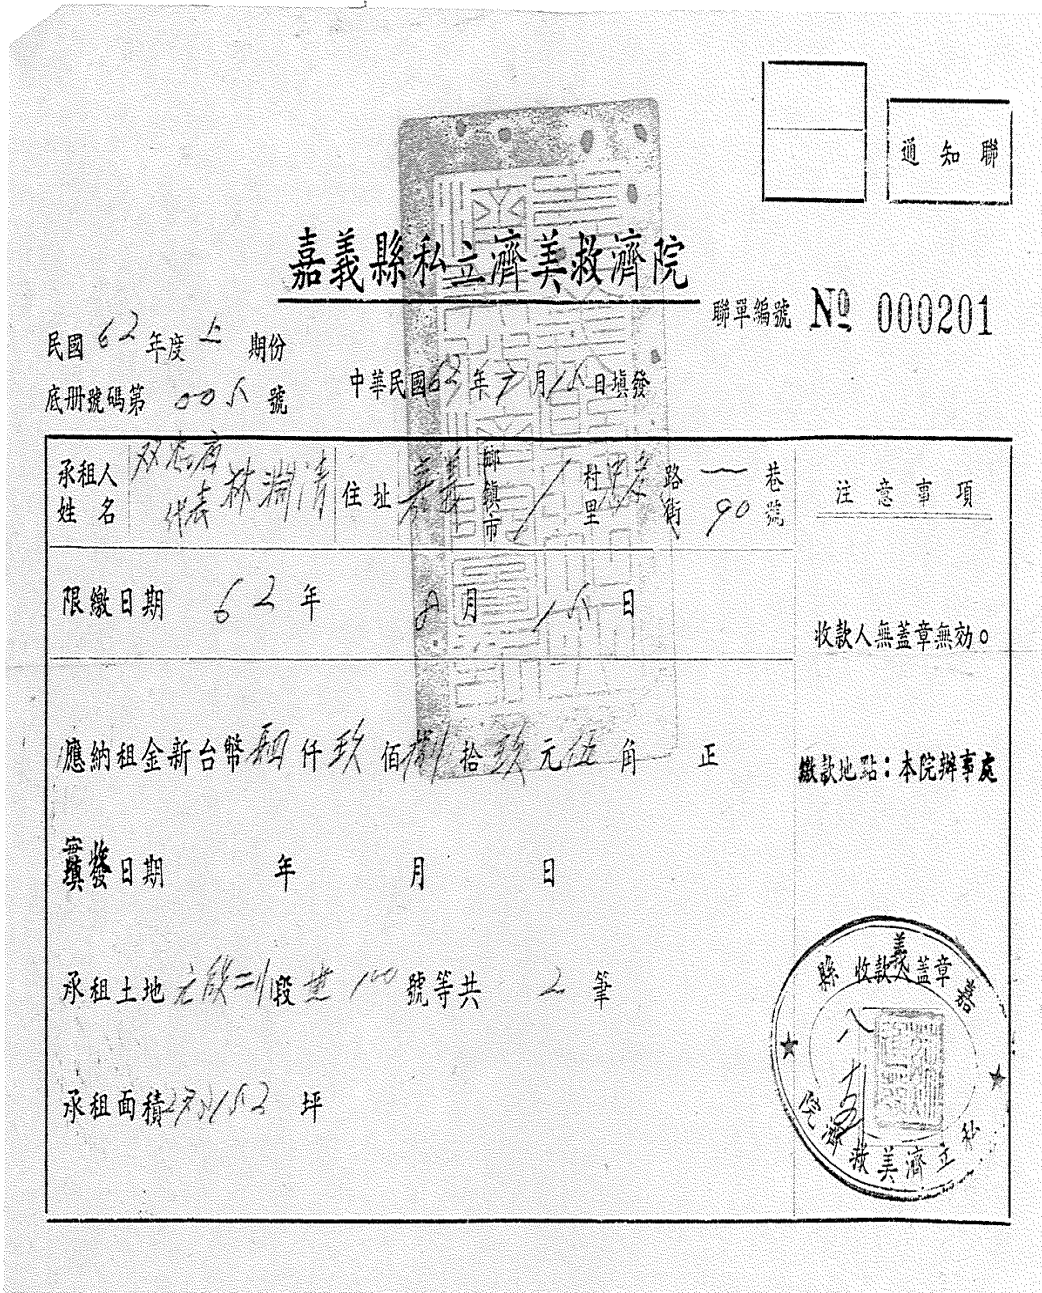 通知聯
嘉義縣私立濟美救濟院
聯單編號 № 000201
民國62年度上期份
底册號碼第 00 號
中華民國62年 月 日填發
承租人姓名 双忠廟代表林淵清 住址 嘉義 鄉鎮市 村里 忠孝 路街 一 巷 90 號
注意事項
限繳日期 62年 8月 15日
收款人無蓋章無効。
應納租金新台幣肆仟玖佰捌拾玖元伍角 正
繳款地點：本院辦事處
實收日期 年 月 日
承租土地 段 100 號等共 2 筆
承租面積 坪
收款人蓋章
嘉義縣私立濟美救濟院